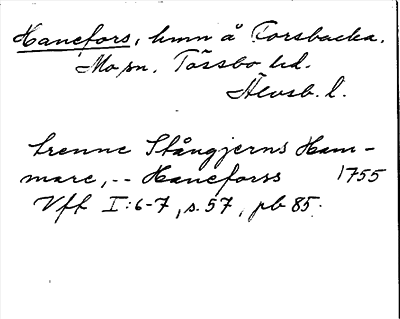 Hanefors, hmn å Torsbacka.
Mo sn. Tössbo hd.
Älvsb. l.
trenne Stångjerns Ham-
mare, -- Haneforss 1755
Vff I:6-7, s. 57, pb 85.